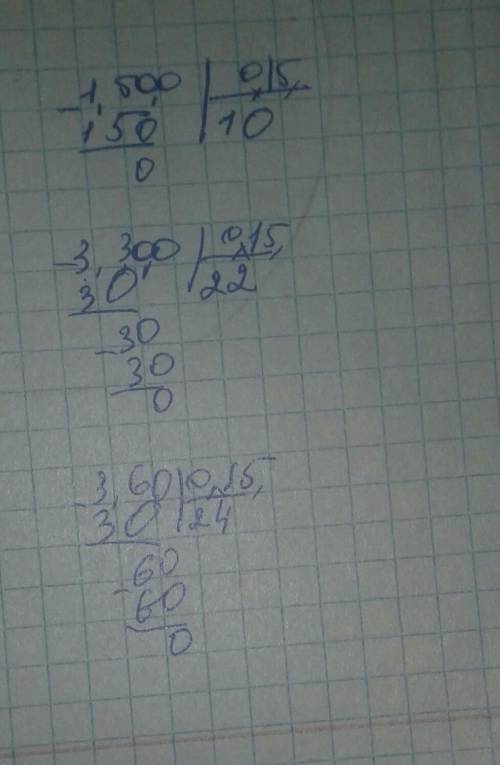 -1,500 | 0,15,
150 | 10
0
-3,300 | 0,15,
30, | 22
-30
30
0
-3,60 | 0,15,
30 | 24
-60
60
0